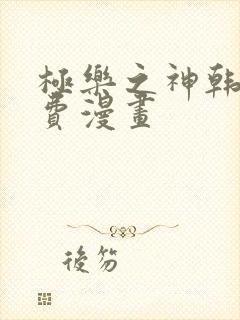 極樂之神韩
費漫畫
後笏